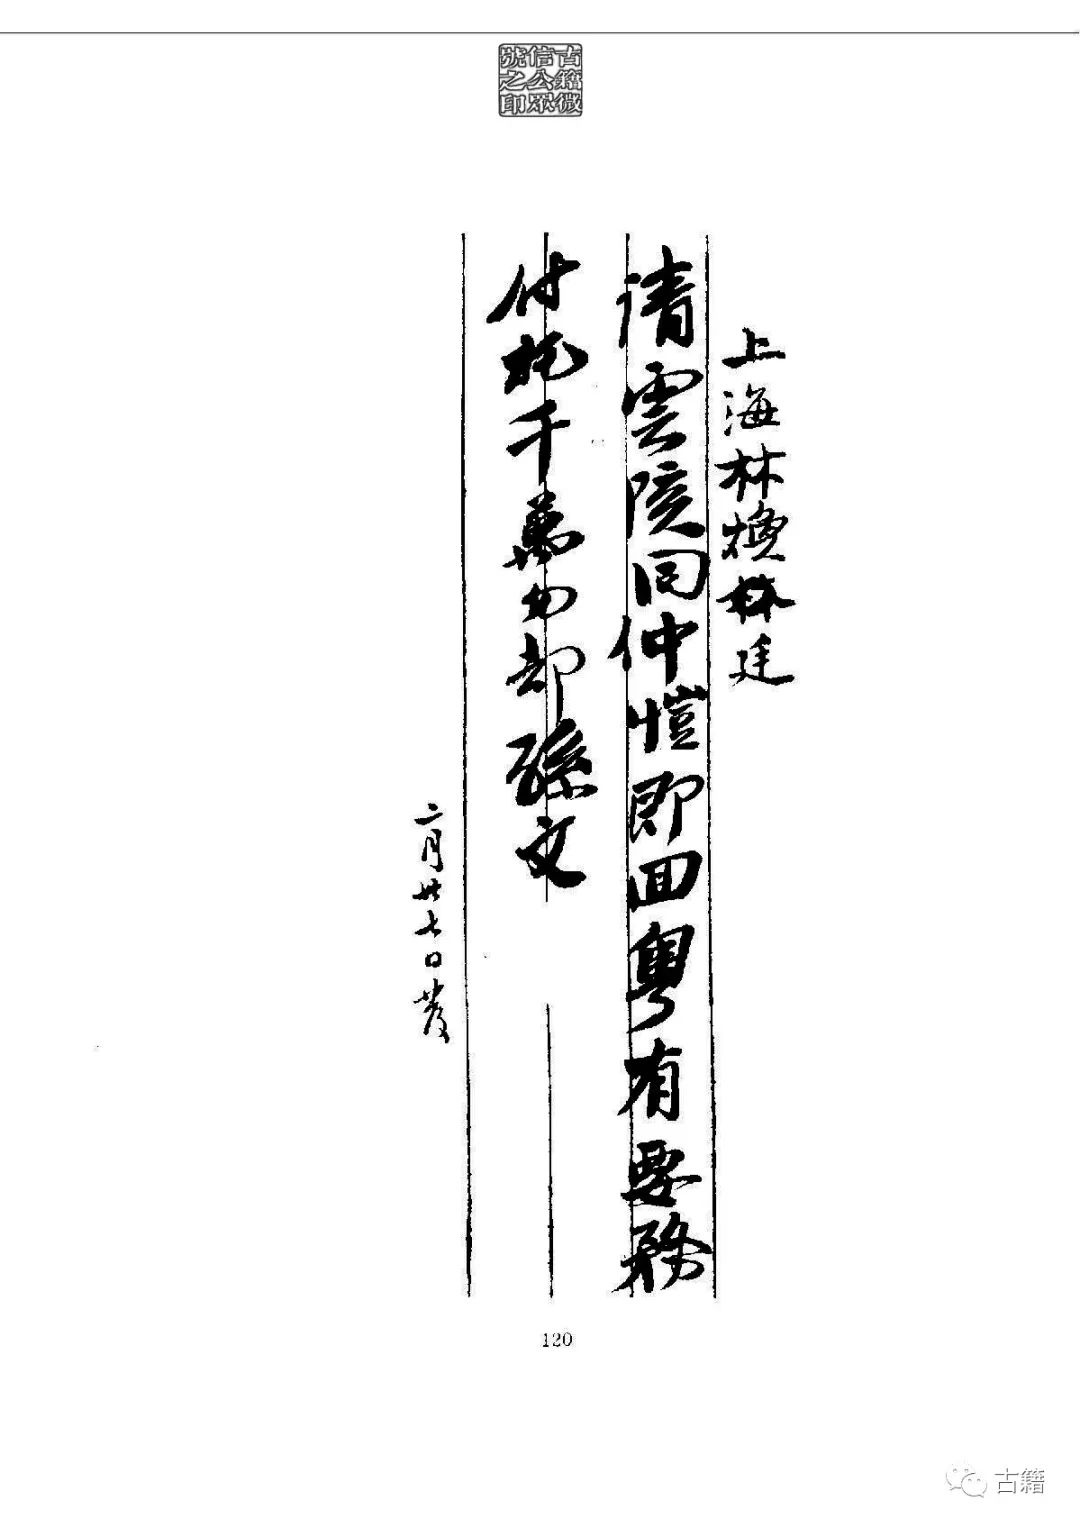 古籍微
信公眾
號之印
上海林煥廷
請雲陔同仲愷即回粵有要務
付托千萬勿却孫文
二月廿七日發
120
古籍